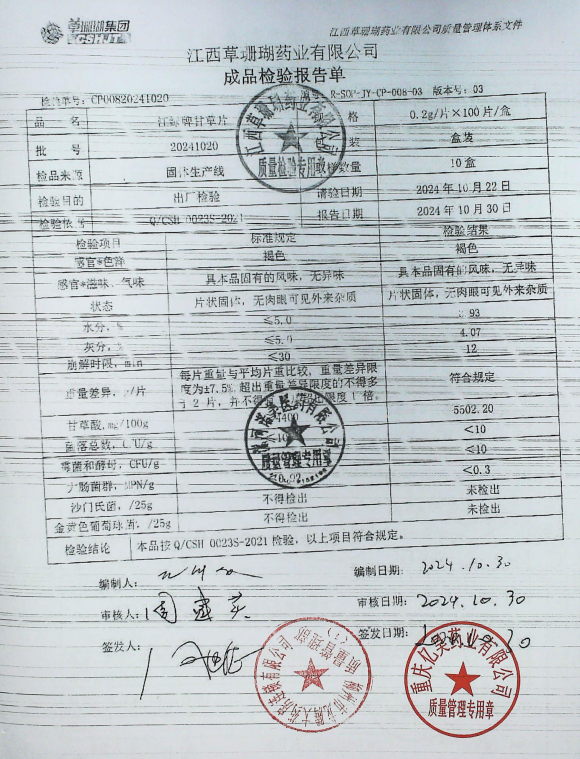 草珊瑚集团
CSHJT
江西草珊瑚药业有限公司质量管理体系文件
江西草珊瑚药业有限公司
成品检验报告单
检验单号：CP00820241020 R-SOP-JY-CP-008-03 版本号：03
品 名 牌甘草片 格 0.2g/片×100片/盒
批 号 20241020 装 盒装
检品来源 固体生产线 样数量 10盒
检验目的 出厂检验 请验日期 2024年10月22日
检验依据 Q/CSH 0023S-2021 报告日期 2024年10月30日
检验项目 标准规定 检验结果
感官*色泽 褐色 褐色
感官*滋味、气味 具本品固有的风味，无异味 具本品固有的风味，无异味
状态 片状固体，无肉眼可见外来杂质 片状固体，无肉眼可见外来杂质
水分，% ≤5.0 .93
灰分，% ≤5.0 4.07
崩解时限，min ≤30 12
重量差异，g/片 每片重量与平均片重比较，重量差异限度为±7.5%，超出重量差异限度的不得多于2片，并不得 限度1倍。 符合规定
甘草酸，mg/100g 5502.20
菌落总数，CFU/g <10
霉菌和酵母，CFU/g <10
大肠菌群，MPN/g <0.3
沙门氏菌，/25g 不得检出 未检出
金黄色葡萄球菌，/25g 不得检出 未检出
检验结论 本品按Q/CSH 0023S-2021检验，以上项目符合规定。
编制人： 编制日期： 2024.10.30
审核人： 审核日期： 2024.10.30
签发人： 签发日期：
江西草珊瑚药业有限公司
质量检验专用章
医药有限公司
质量管理专用章
大药房连锁有限公司
质量管理部
重庆亿昊药业有限公司
质量管理专用章